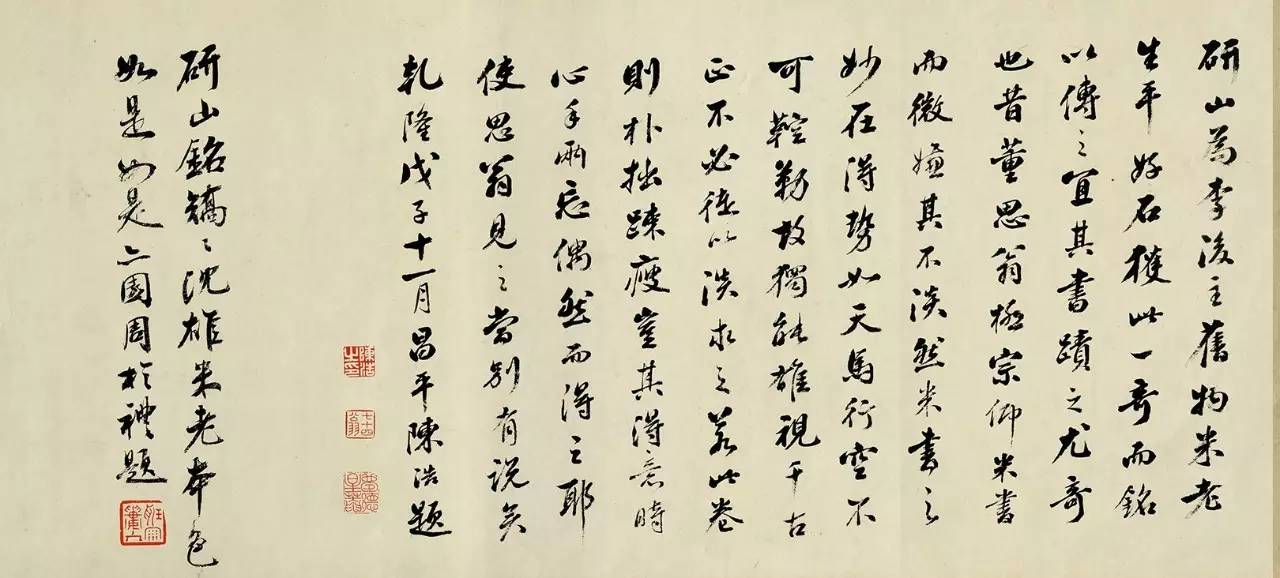 研山為李後主舊物米老
生平好石獲此一奇而銘
以傳之宜其書蹟之尤奇
也昔董思翁極宗仰米書
而微嫌其不淡然米書之
妙在得勢如天馬行空不
可鞚勒故獨能雄視千古
正不必徒以淡求之若此卷
則朴拙踈瘦豈其得意時
心手兩忘偶然而得之耶
使思翁見之當別有說矣
乾隆戊子十一月昌平陳浩題
陳浩之印
七十四翁
研山銘沈雄米老本色
如是如是亦園周於禮題